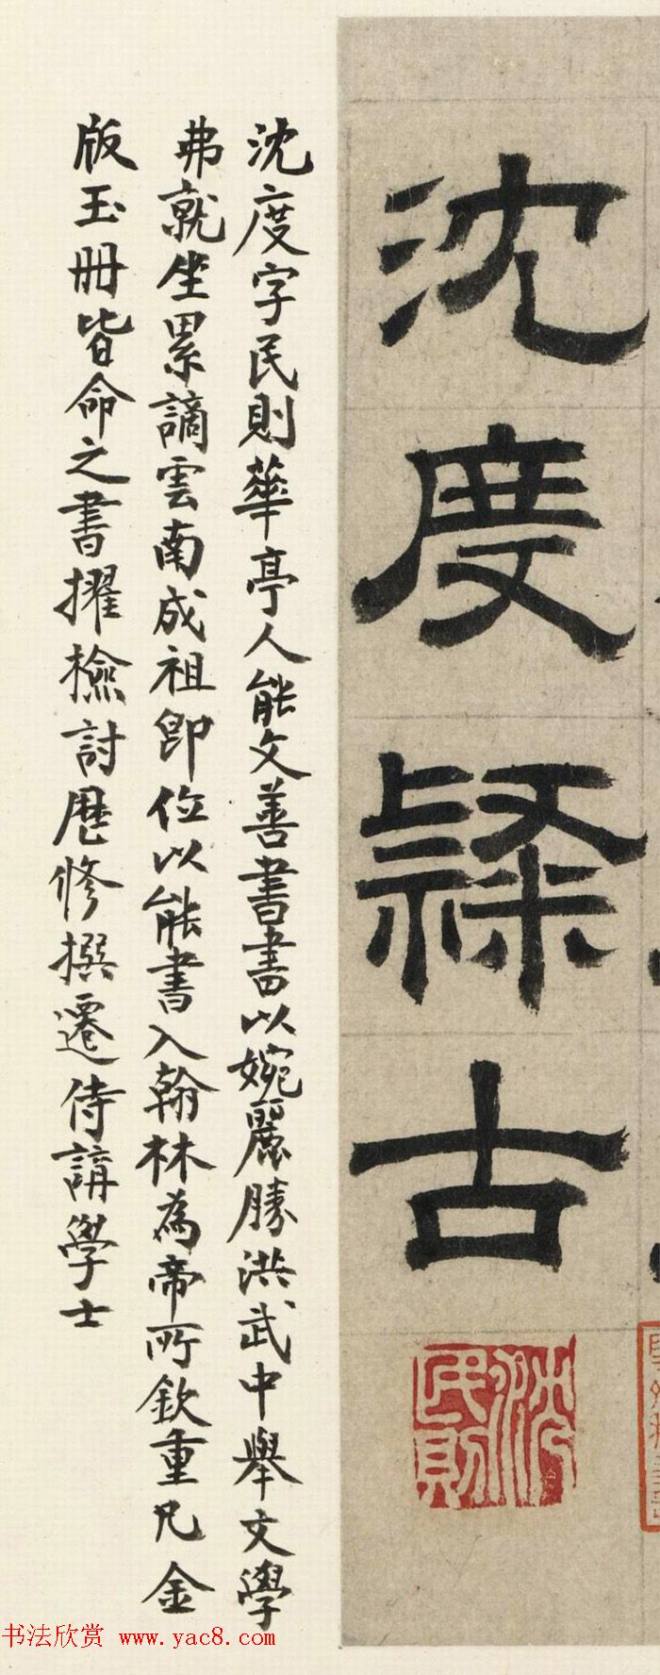 沈度隸古
沈民則
沈度字民則華亭人能文善書書以婉麗勝洪武中舉文學
弗就坐累謫雲南成祖即位以能書入翰林為帝所欽重凡金
版玉冊皆命之書擢檢討歷修撰遷侍講學士
书法欣赏 www.yac8.com